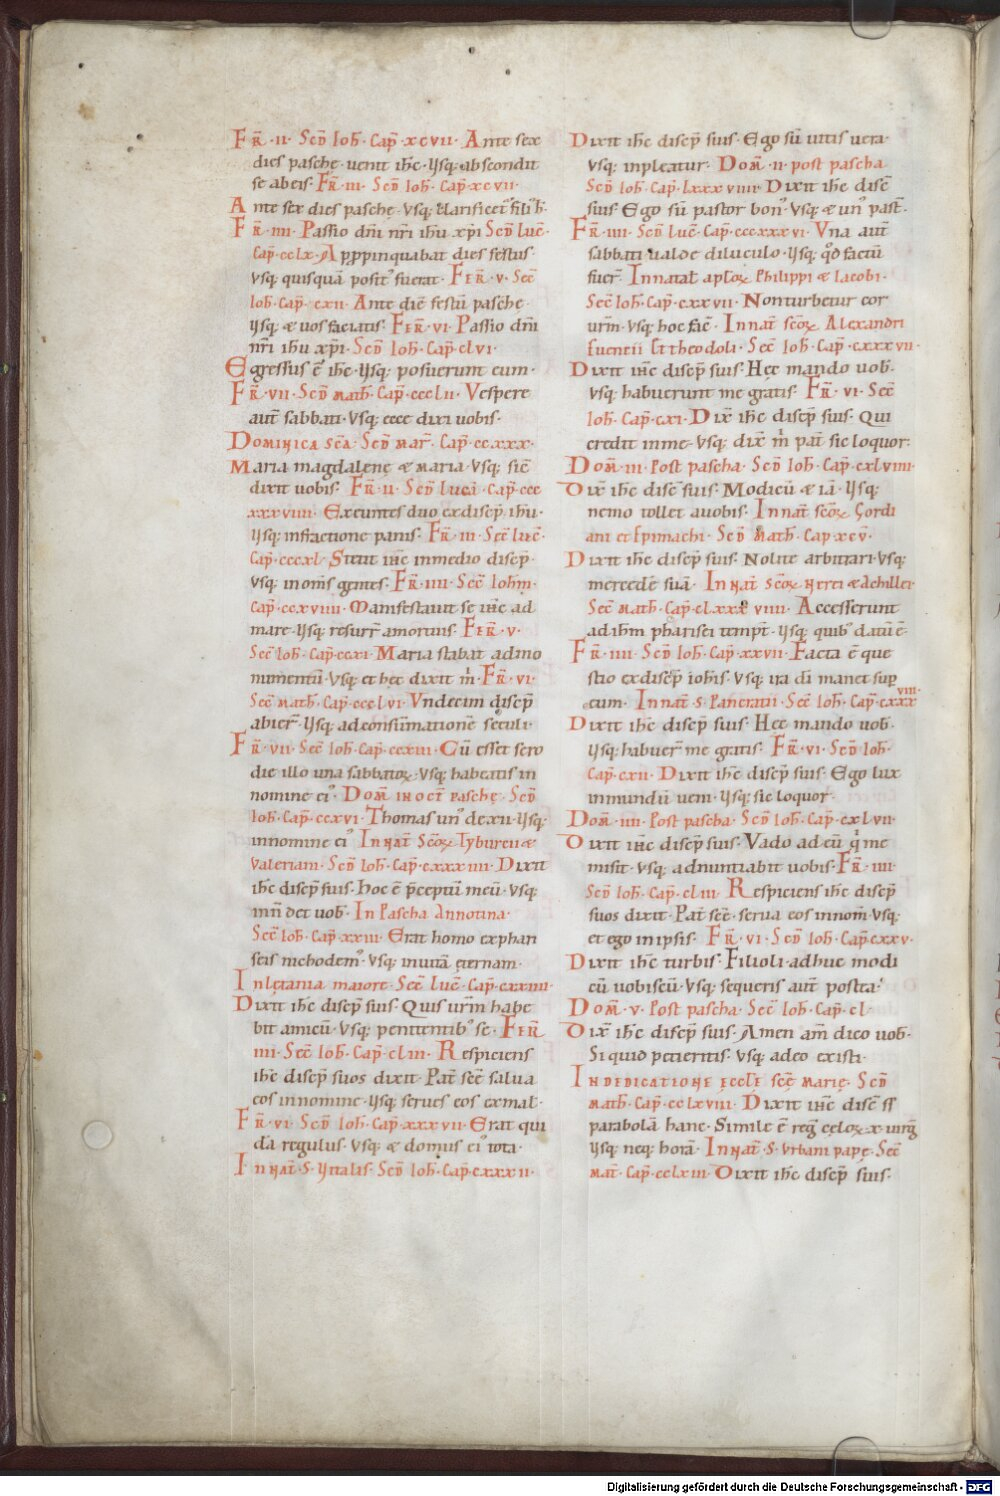 Fr̄ · ii · Scd̄ Ioh̄ · Cap̄ · xcvii · Ante sex
dies paschę · uenit ihc̄ · Usq; abscondit
se abeis · Fr̄ · iii · Scd̄ Ioh̄ · Cap̄ · xcvii ·
Ante sex dies paschę · Usq; clarificet᷑ filiꝰ h̄ ·
Fr̄ · iiii · Passio dn̄i nr̄i ihū xp̄i Scd̄ Luc̄ ·
Cap̄ · cclx · Appropinquabat dies festus ·
Vsq; quisquā positꝰ fuerat · Fer̄ · v · Sec̄
Ioh̄ · Cap̄ · cxii · Ante diē festū paschę ·
Usq; & uos faciatis · Fer̄ · vi · Passio dn̄i
nr̄i ihū xp̄i · Scd̄ Ioh̄ · Cap̄ · clvi ·
Egressus ē ihc̄ · Usq; posuerunt eum ·
Fr̄ · vii · Scd̄ Math̄ · Cap̄ · ccclii · Vespere
aut̄ sabbati · Vsq; ecce dixi uobis ·
Dominica sc̄a · Scd̄ Mar̄ · Cap̄ · ccxxx ·
Maria magdalenę & maria · Vsq; sic̄
dixit uobis · Fr̄ · ii · Scd̄ Lucā · Cap̄ · ccc
xxxviiii · Exeuntes duo exdiscip̄ ihū ·
Usq; infractione panis · Fr̄ · iii · Sec̄ Luc̄ ·
Cap̄ · cccxl · Stetit ihc̄ inmedio discip̄ ·
Vsq; inom̄s gentes · Fr̄ · iiii · Sec̄ Iohm̄ ·
Cap̄ · ccxviiii · Manifestauit se ihc̄ ad
mare · Usq; resurr̄ amortuis · Fer̄ · v ·
Sec̄ Ioh̄ · Cap̄ · ccxi · Maria stabat admo
numentū · Vsq; et hęc dixit m̄ · Fr̄ · vi ·
Sec̄ Math̄ · Cap̄ · ccclvi · Vndecim discip̄
abier̄ · Usq; adconsūmationē sęculi ·
Fr̄ · vii · Sec̄ Ioh̄ · Cap̄ · ccxiii · Cū esset sero
die illo una sabbatoꝝ · Vsq; habeatis in
nomine eiꝰ · Dom̄ inoct̄ paschę · Scd̄
Ioh̄ · Cap̄ · ccxvi · Thomas unꝰ dexii · Usq;
innomine eiꝰ Innat̄ Sc̄oꝝ Tyburcii &
Valeriani · Scd̄ Ioh̄ · Cap̄ · cxxxiiii · Dixit
ihc̄ discip̄ suis · Hoc ē p̄ceptū meū · Vsq;
inn̄ det uob̄ · In Pascha Annotina ·
Sec̄ Ioh̄ · Cap̄ · xxiii · Erat homo exphari
seis nichodemꝰ · Vsq; inuitā ęternam ·
Inlętania maiore · Sec̄ Luc̄ · Cap̄ · cxxiiii ·
Dixit ihc̄ discip̄ suis · Quis urm̄ habe
bit amicū · Vsq; petentibꝰ se · Fer̄
iiii · Sec̄ Ioh̄ · Cap̄ · cliii · Respiciens
ihc̄ discip̄ suos dixit · Pat̄ sc̄e salua
eos innomine · Usq; serues eos exmal̄ ·
Fr̄ · vi · Scd̄ Ioh̄ · Cap̄ · xxxvii · Erat qui
dā regulus · Vsq; & domus eiꝰ tota ·
Innat̄ · S · Vitalis · Scd̄ Ioh̄ · Cap̄ · cxxxii ·
Dixit ihc̄ discip̄ suis · Ego sū uitis uera ·
Vsq; inpleatur · Dom̄ · ii · post pascha
Scd̄ Ioh̄ · Cap̄ · lxxxviiii · Dixit ihc̄ disc̄
suis · Ego sū pastor bonꝰ · Vsq; & unꝰ past̄ ·
Fr̄ · iiii · Scd̄ Luc̄ · Cap̄ · cccxxxvi · Vna aut̄
sabbati ualde diluculo · Usq; qd̄ factū
fuer̄ · Innatal̄ apl̄oꝝ Philippi & Iacobi ·
Sec̄ Ioh̄ · Cap̄ · cxxvii · Nonturbetur cor
urm̄ · Vsq; hoc fac̄ · Innat̄ sc̄oꝝ Alexandri
Euentii Et theodoli · Sec̄ Ioh̄ · Cap̄ · cxxxvii ·
Dixit ihc̄ discip̄ suis · Hęc mando uob̄ ·
Vsq; habuerunt me gratis · Fr̄ · vi · Sec̄
Ioh̄ · Cap̄ · cxi · Dix̄ ihc̄ discip̄ suis · Qui
credit inme · Vsq; dix̄ m̄ pat̄ sic loquor ·
Dom̄ · iii · Post pascha · Scd̄ Ioh̄ · Cap̄ · cxlviiii ·
Dix̄ ihc̄ disc̄ suis · Modicū & iā · Usq;
nemo tollet auobis · Innat̄ sc̄oꝝ Gordi
ani et Epimachi · Scd̄ Math̄ · Cap̄ · xcv ·
Dixit ihc̄ discip̄ suis · Nolite arbitrari · Vsq;
mercedē suā · Innat̄ Sc̄oꝝ Nerei & Achillei ·
Sec̄ Math̄ · Cap̄ · clxxxviiii · Accesserunt
adihm̄ pharisei tempt̄ · Usq; quibꝰ datū ē ·
Fr̄ · iiii · Scd̄ Ioh̄ · Cap̄ · xxvii · Facta ē que
stio exdiscip̄ ioh̄is · Vsq; ira dī manet sup̄
eum · Innat̄ · S · Pancratii · Sec̄ Ioh̄ · Cap̄ · cxxxviii ·
Dixit ihc̄ discip̄ suis · Hęc mando uob̄ ·
Usq; habuer̄ me gratis · Fr̄ · vi · Scd̄ Ioh̄ ·
Cap̄ · cxii · Dixit ihc̄ discip̄ suis · Ego lux
inmundū ueni · Usq; sic loquor ·
Dom̄ · iiii · Post pascha · Scd̄ Ioh̄ · Cap̄ · cxlvii ·
Dixit ihc̄ discip̄ suis · Vado ad eū q̇ me
misit · Vsq; adnuntiabit uobis · Fr̄ · iiii ·
Scd̄ Ioh̄ · Cap̄ · cliii · Respiciens ihc̄ discip̄
suos dixit · Pat̄ sc̄e · serua eos innom̄ · Vsq;
et ego in ipsis · Fr̄ · vi · Scd̄ Ioh̄ · Cap̄ · cxxv ·
Dixit ihc̄ turbis · Filioli · adhuc modi
cū uobiscū · Vsq; sequeris aut̄ postea ·
Dom̄ · v · Post pascha · Sec̄ Ioh̄ · Cap̄ · cl ·
Dix̄ ihc̄ discip̄ suis · Amen am̄ dico uob̄ ·
Si quid petieritis · Vsq; adeo existi ·
Indedicatione eccl̄ę sc̄ę Marię · Scd̄
Math̄ · Cap̄ · cclxviii · Dixit ihc̄ disc̄ s̄s̄
parabolā hanc · Simile ē reg̅ cęloꝝ · x · uirg̅
Usq; neq; horā · Innat̄ · S · Vrbani papę · Sec̄
Mat̄ · Cap̄ · cclxiii · Dixit ihc̄ discip̄ suis ·
Digitalisierung gefördert durch die Deutsche Forschungsgemeinschaft - DFG